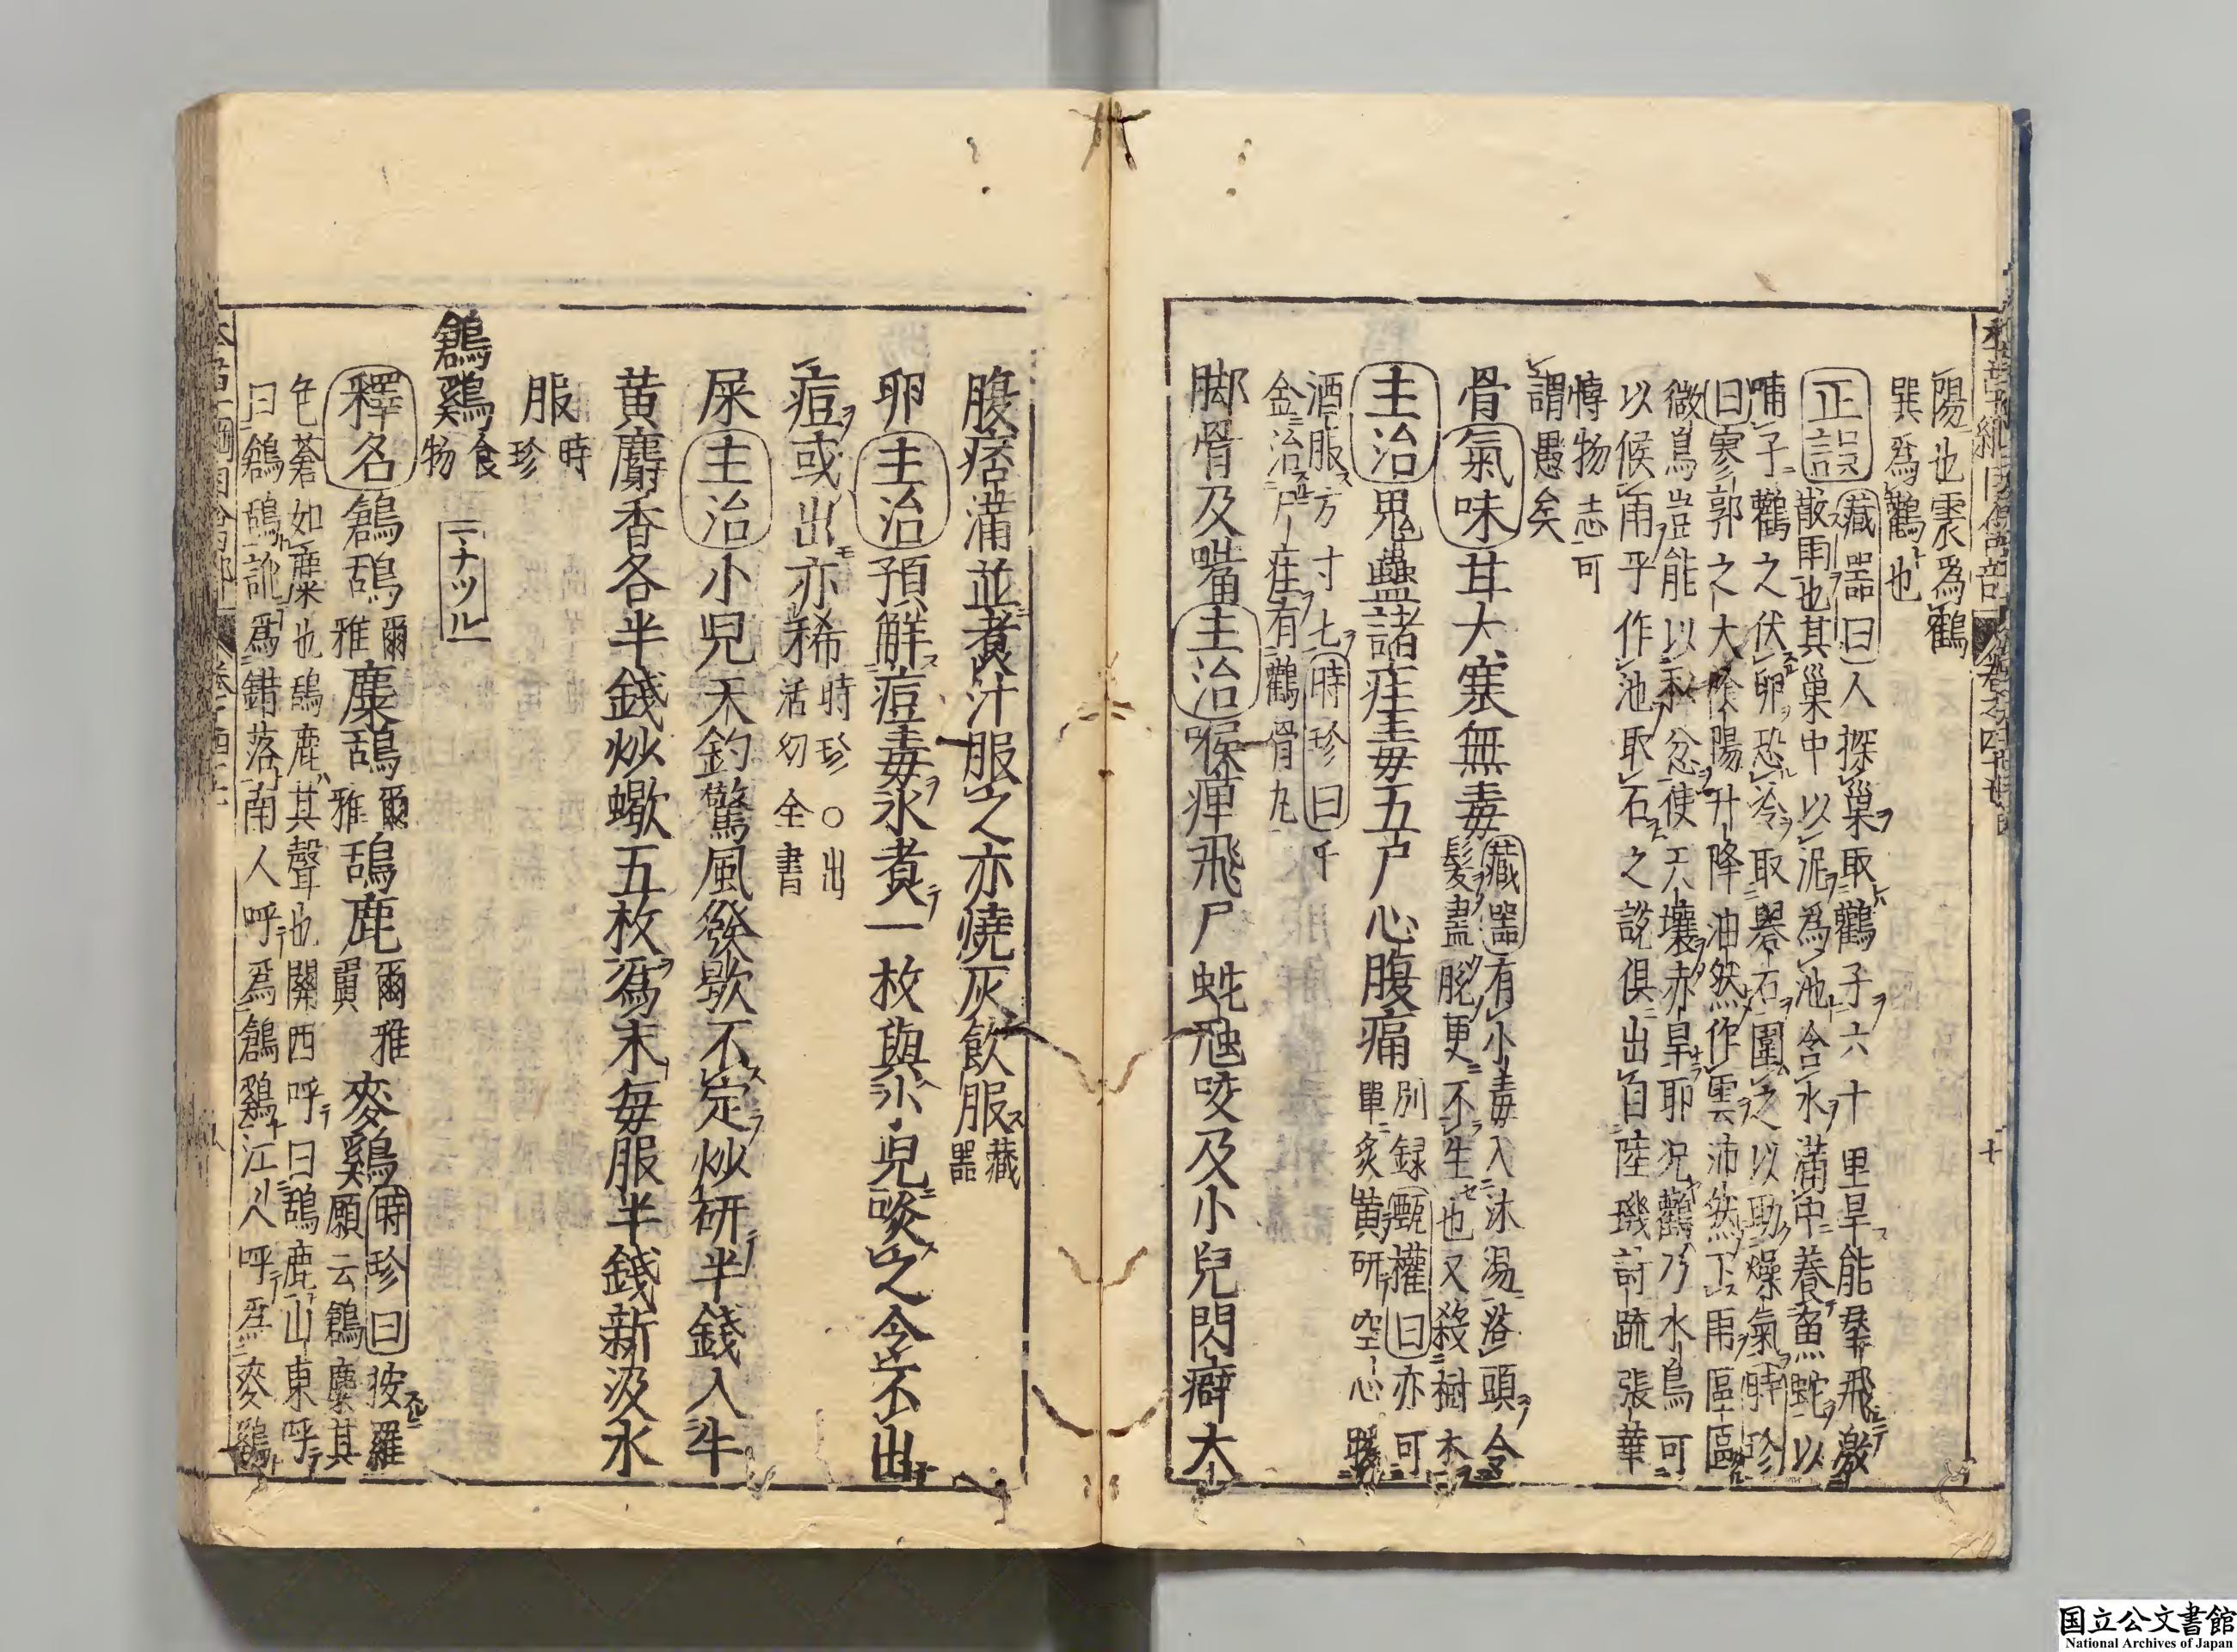 陽也震爲鸛
巽爲鸛也
正誤 藏器曰人探巢取鸛子六十里旱能羣飛激
散雨也其巢中以泥爲池含水滿中養魚蛇以
哺子鸛之伏卵恐冷取礜石圍之以助燥氣時珍
曰寥郭之大陰陽升降油然作雲沛然下雨區區
微鳥豈能以私忿使天壤赤旱耶况鸛乃水鳥可
以候雨乎作池取石之説俱出自陸璣詩疏張華
博物志可
謂愚矣
骨氣味甘大寒無毒 藏器有小毒入沐湯浴頭令
髮盡脫更不生也又殺樹木
主治鬼蠱諸疰毒五尸心腹痛 別録 甄權曰亦可
單炙黄研空心暖
酒服方寸匕時珍曰千
金治尸疰有鸛骨丸
脚骨及嘴主治喉痺飛尸蛇虺咬及小兒閃癖大
腹痞滿並煮汁服之亦燒灰飲服 藏器
卵主治預解痘毒水煮一枚與小兒啖之令不出
痘或出亦稀 時珍○出
活幼全書
屎主治小兒天釣驚風發歇不定炒研半錢入牛
黄麝香各半錢炒蠍五枚爲末毎服半錢新汲水
服 時珍
鶬鷄 食物 ナツル
釋名鶬鴰 爾雅 麋鴰 爾雅 鴰鹿 爾雅翼 麥鷄 時珍曰按羅
願云鶬麋其
色蒼如麋也鴰鹿其聲也關西呼曰鴰鹿山東呼
曰鶬鴰訛爲錯落南人呼爲鶬鷄江人呼爲麥鷄
国立公文書館
National Archives of Japan